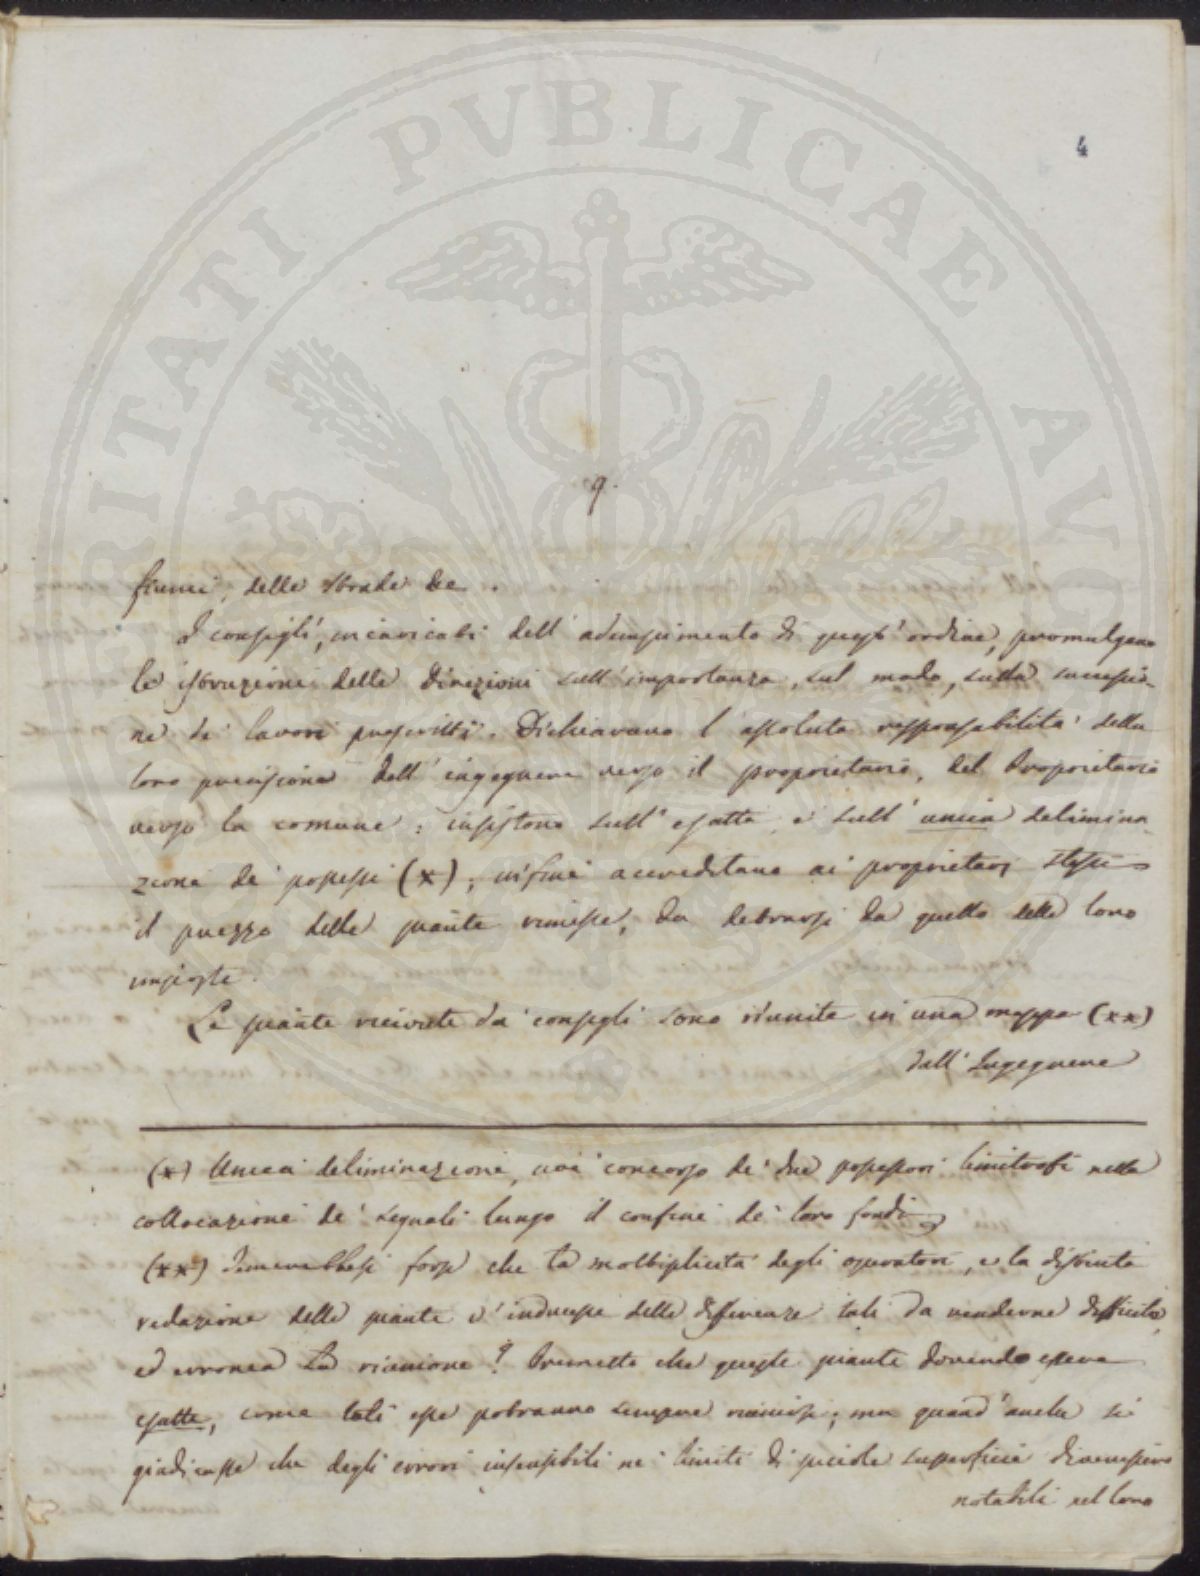 PROSPERITATI PVBLICAE AVGENDAE
4
9.
fiumi, delle strade &e.
I consigli, incaricati dell' adempimento di quest' ordine, promulgano
le istruzioni delle Direzioni sull' importanza, sul modo, sulla successio-
ne de' lavori prescritti. Dichiarano l' assoluta risponsabilità della
loro precisione dell' ingegnere verso il proprietario, del Proprietario
verso la comune: insistono sull' esatta e sull' unica delimina-
zione de' possessi (*); infine accreditano ai proprietarj stessi
il prezzo delle piante rimesse, da detrarsi da quello delle loro
imposte.
Le piante ricevute da' consigli sono riunite in una mappa (**)
dall' Ingegnere
(*) Unica deliminazione, cioè concorso de' due possessori limitrofi nella
collocazione de' segnali lungo il confine de' loro fondi
(**) Temerebbesi forse che la moltiplicità degli operatori, e la distinta
redazione delle piante v' inducesse delle differenze tali da renderne difficile,
ed erronea la riunione? Premetto che queste piante dovendo essere
esatte, come tali esse potranno sempre riunirsi; ma quand' anche si
giudicasse che degli errori insensibili ne' limiti di piccole superficie divenissero
notabili nel loro